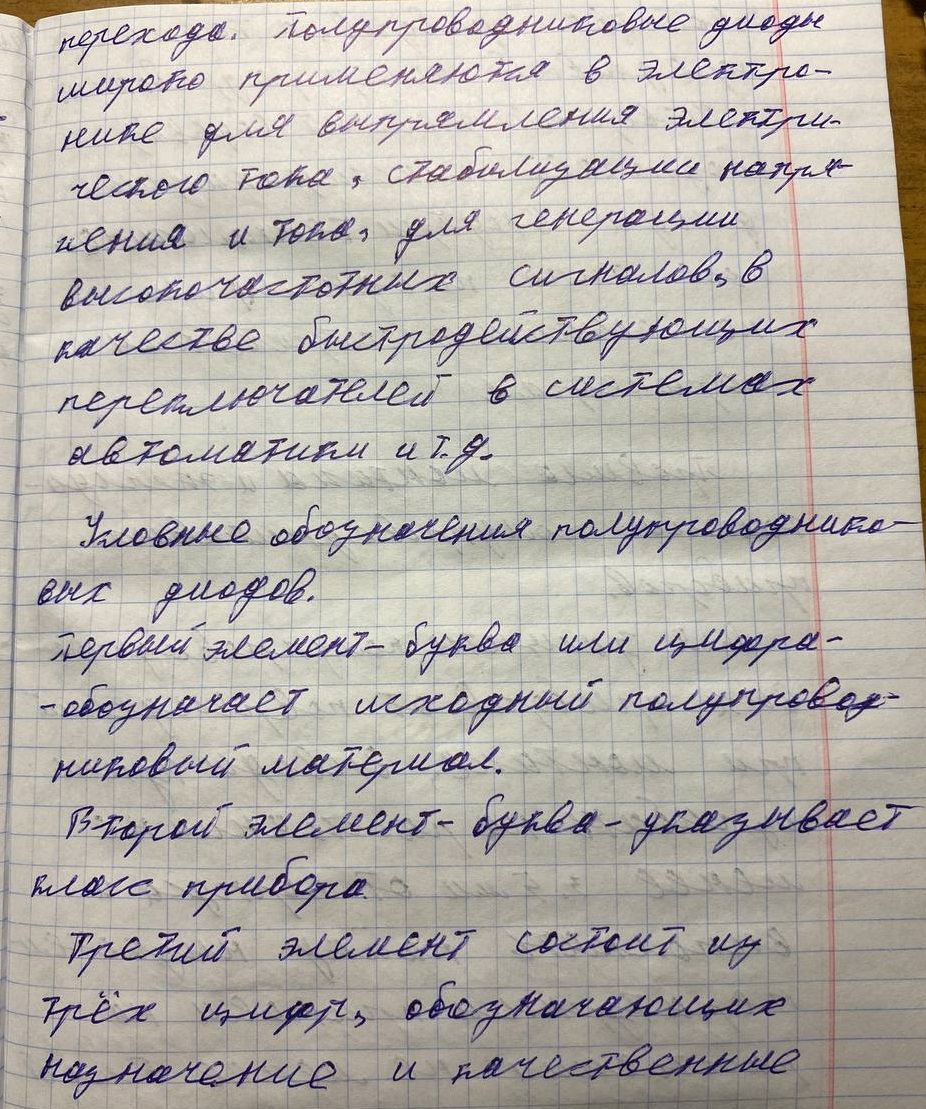 перехода. Полупроводниковые диоды
широко применяются в электро-
нике для выпрямления электри-
ческого тока, стабилизации напря-
жения и тока, для генерации
высокочастотных сигналов, в
качестве быстродействующих
переключателей в системах
автоматики и т.д.
Условные обозначения полупроводнико-
вых диодов.
Первый элемент - буква или цифра -
- обозначает исходный полупровод-
никовый материал.
Второй элемент - буква - указывает
класс прибора.
Третий элемент состоит из
трёх цифр, обозначающих
назначение и качественные